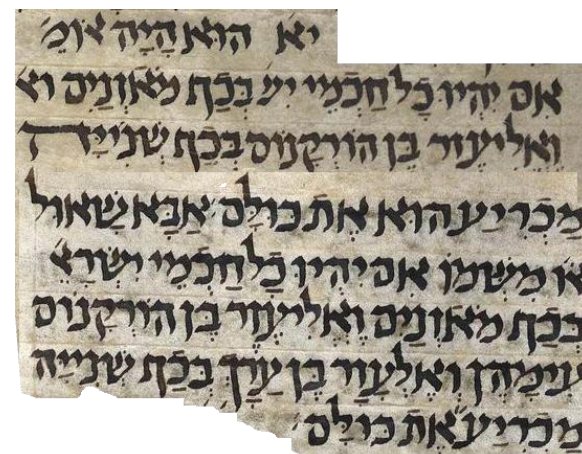 יא הוא היה אומ׳
אם יהיו כל חכמי יש׳ בכף מאזנים וא
ואליעזר בן הורקנוס בכף שנייה
מכריע הוא את כולם אבא שאול
או׳ משמו אם יהיו כל חכמי ישרא׳
בכף מאזנים ואליעזר בן הורקנוס
עימהן ואלעזר בן ערך בכף שנייה
מכריע את כולם